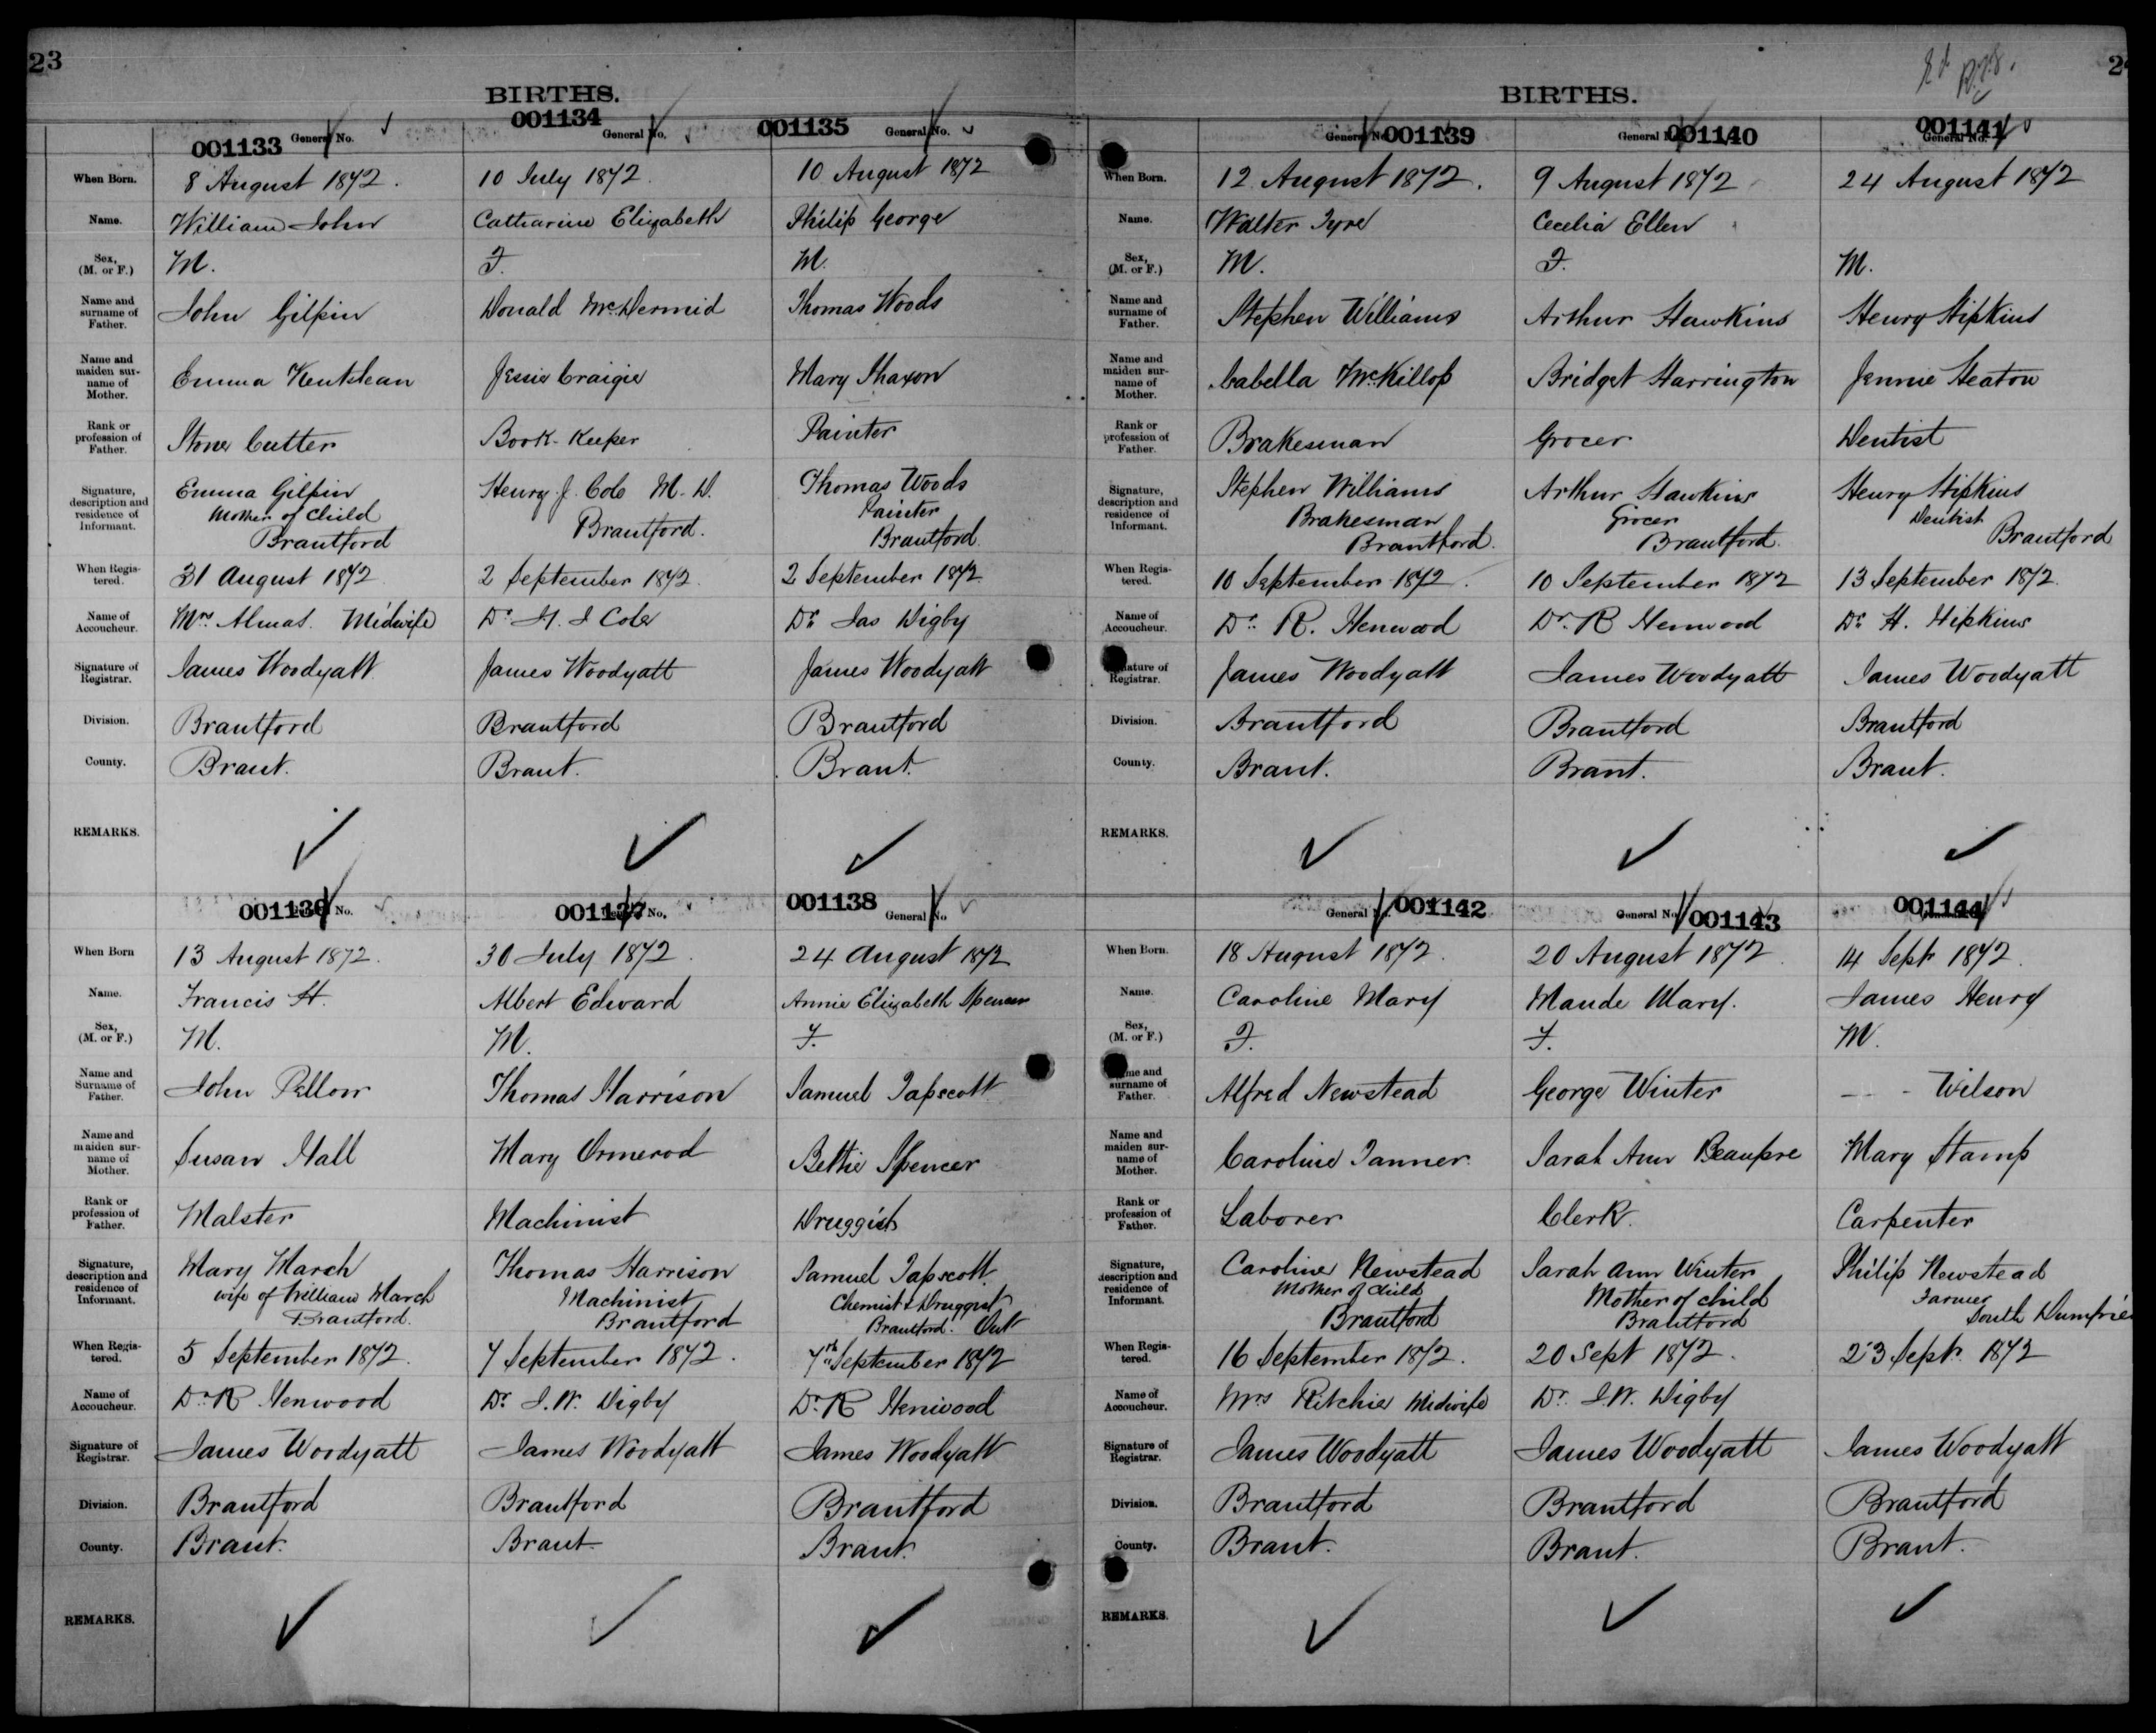 23
BIRTHS.
001133 General No.
001134 General No.
001135 General No.
When Born. 8 August 1872. 10 July 1872. 10 August 1872
Name. William John Catharine Elizabeth Philip George
Sex, (M. or F.) M. F. M.
Name and surname of Father. John Gilpin Donald McDermid Thomas Woods
Name and maiden surname of Mother. Emma Jessie Craigie Mary Shaxon
Rank or profession of Father. Stone Cutter Book-Keeper Painter
Signature, description and residence of Informant.
Emma Gilpin
Mother of Child
Brantford
Henry J. Cole M.D.
Brantford.
Thomas Woods
Painter
Brantford.
When Registered. 31 August 1872 2 September 1872. 2 September 1872
Name of Accoucheur. Mrs. Almas. Midwife Dr. H. J Cole Dr. Jas Digby
Signature of Registrar. James Woodyatt James Woodyatt James Woodyatt
Division. Brantford Brantford Brantford
County. Brant. Brant. Brant.
REMARKS.
001136 General No.
001137 General No.
001138 General No
When Born 13 August 1872. 30 July 1872. 24 August 1872
Name. Francis H. Albert Edward Annie Elizabeth Spencer
Sex, (M. or F.) M. M. F.
Name and Surname of Father. John Pellow Thomas Harrison Samuel Tapscott
Name and maiden surname of Mother. Susan Hall Mary Ormerod Bettie Spencer
Rank or profession of Father. Malster Machinist Druggist
Signature, description and residence of Informant.
Mary March
wife of William March
Brantford.
Thomas Harrison
Machinist
Brantford
Samuel Tapscott
Chemist & Druggist
Brantford. Ont
When Registered. 5 September 1872. 7 September 1872. 7th September 1872
Name of Accoucheur. Dr. R Henwood Dr. J. W. Digby Dr. R Henwood
Signature of Registrar. James Woodyatt James Woodyatt James Woodyatt
Division. Brantford Brantford Brantford
County. Brant. Brant. Brant.
REMARKS.
BIRTHS.
General No. 001139
General No. 001140
001141 General No.
When Born. 12 August 1872. 9 August 1872 24 August 1872
Name. Walter Tyre Cecelia Ellen
Sex, (M. or F.) M. F. M.
Name and surname of Father. Stephen Williams Arthur Hawkins Henry Hipkins
Name and maiden surname of Mother. Isabella McKillop Bridget Harrington Jennie Heaton
Rank or profession of Father. Brakesman Grocer Dentist
Signature, description and residence of Informant.
Stephen Williams
Brakesman
Brantford.
Arthur Hawkins
Grocer
Brantford.
Henry Hipkins
Dentist
Brantford
When Registered. 10 September 1872. 10 September 1872 13 September 1872.
Name of Accoucheur. Dr. R. Henwood Dr. R Henwood Dr. H. Hipkins
Signature of Registrar. James Woodyatt James Woodyatt James Woodyatt
Division. Brantford Brantford Brantford
County. Brant. Brant. Brant.
REMARKS.
General No. 001142
General No 001143
001144
When Born. 18 August 1872. 20 August 1872. 14 Sept 1872.
Name. Caroline Mary Maude Mary. James Henry
Sex, (M. or F.) F. F. M.
Name and surname of Father. Alfred Newstead George Winter — - Wilson
Name and maiden surname of Mother. Caroline Tanner Sarah Ann Beaupre Mary Stamp
Rank or profession of Father. Laborer Clerk. Carpenter
Signature, description and residence of Informant.
Caroline Newstead
Mother of Child
Brantford
Sarah Ann Winter
Mother of child
Brantford
Philip Newstead
Farmer
South Dumfries
When Registered. 16 September 1872. 20 Sept 1872. 23 Sept. 1872
Name of Accoucheur. Mrs Ritchie Midwife Dr. J. W. Digby
Signature of Registrar. James Woodyatt James Woodyatt James Woodyatt
Division. Brantford Brantford Brantford
County. Brant. Brant. Brant.
REMARKS.